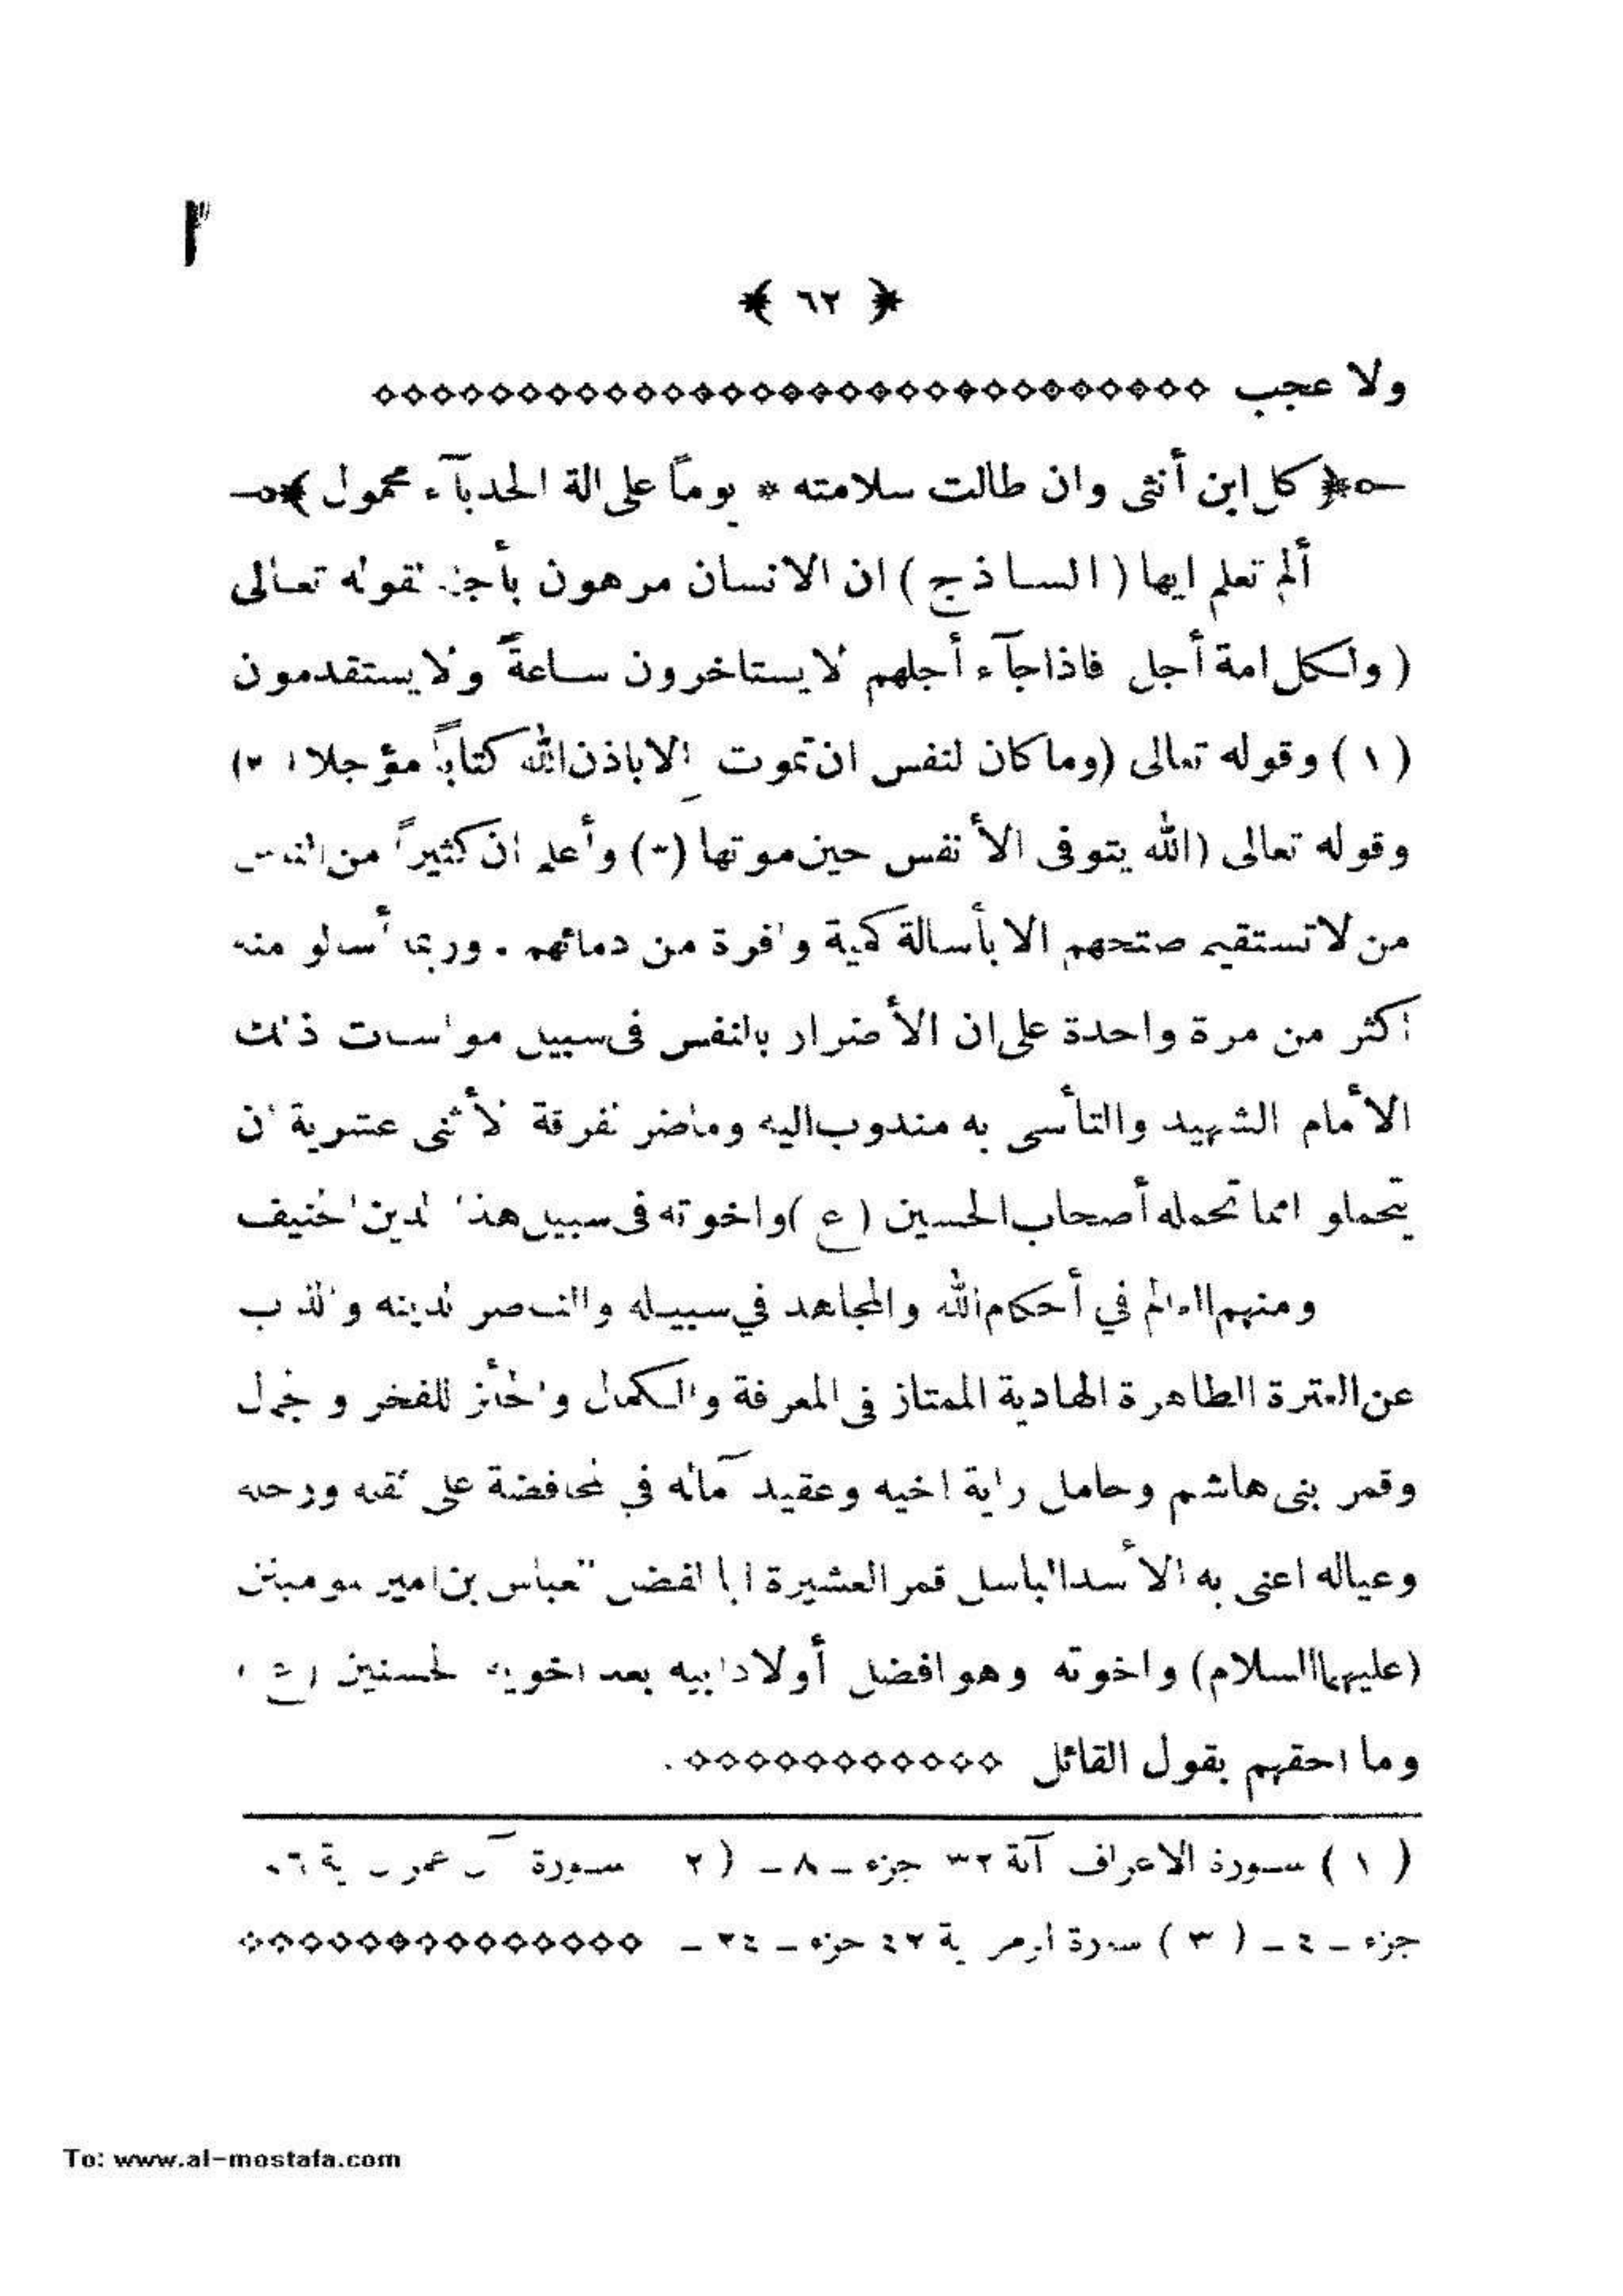 ﴿ ٦٢ ﴾
ولا عجب
﴿ كل ابن أنثى وان طالت سلامته * يوماً على الة الحدبآء محمول ﴾
ألم تعلم ايها ( الساذج ) ان الانسان مرهون بأجل لقوله تعالى
( ولكل امة أجل فاذا جآء أجلهم لا يستاخرون ساعةً ولا يستقدمون
( ١ ) وقوله تعالى (وما كان لنفس ان تموت الا باذن الله كتاباً مؤجلا ( ٢)
وقوله تعالى (الله يتوفى الأنفس حين موتها (٣) وأعلم ان كثيراً من الناس
من لا تستقيم صتحهم الا بأسالة كمية وافرة من دمائهم . وربما أسالو منه
أكثر من مرة واحدة على ان الأضرار بالنفس فى سبيل مواسات ذلك
الأمام الشهيد والتأسى به مندوب اليه وماضر الفرقة الأثنى عشرية ان
يتحملو امما تحمله أصحاب الحسين ( ع ) واخوته فى سبيل هذا الدين الحنيف
ومنهم العالم في أحكام الله والمجاهد في سبيله والناصر لدينه والذاب
عن العترة الطاهرة الهادية الممتاز فى المعرفة والكمال والحائز للفخر و الجمال
وقمر بنى هاشم وحامل راية اخيه وعقيد آماله في المحافضة على ثقله ورحله
وعياله اعنى به الأسد الباسل قمر العشيرة ابا الفضل العباس بن امير المومنين
(عليهما السلام) واخوته وهو افضل أولاد ابيه بعد اخويه الحسنين ( ع )
وما احقهم بقول القائل .
( ١ ) سورة الاعراف آية ٣٢ جزء ـ ٨ ـ ( ٢ سورة آل عمران
جزء ـ ٤ ـ ( ٣ ) سورة الزمر آية ٤٢ جزء ـ ٢٤ ـ
To: www.al-mostafa.com